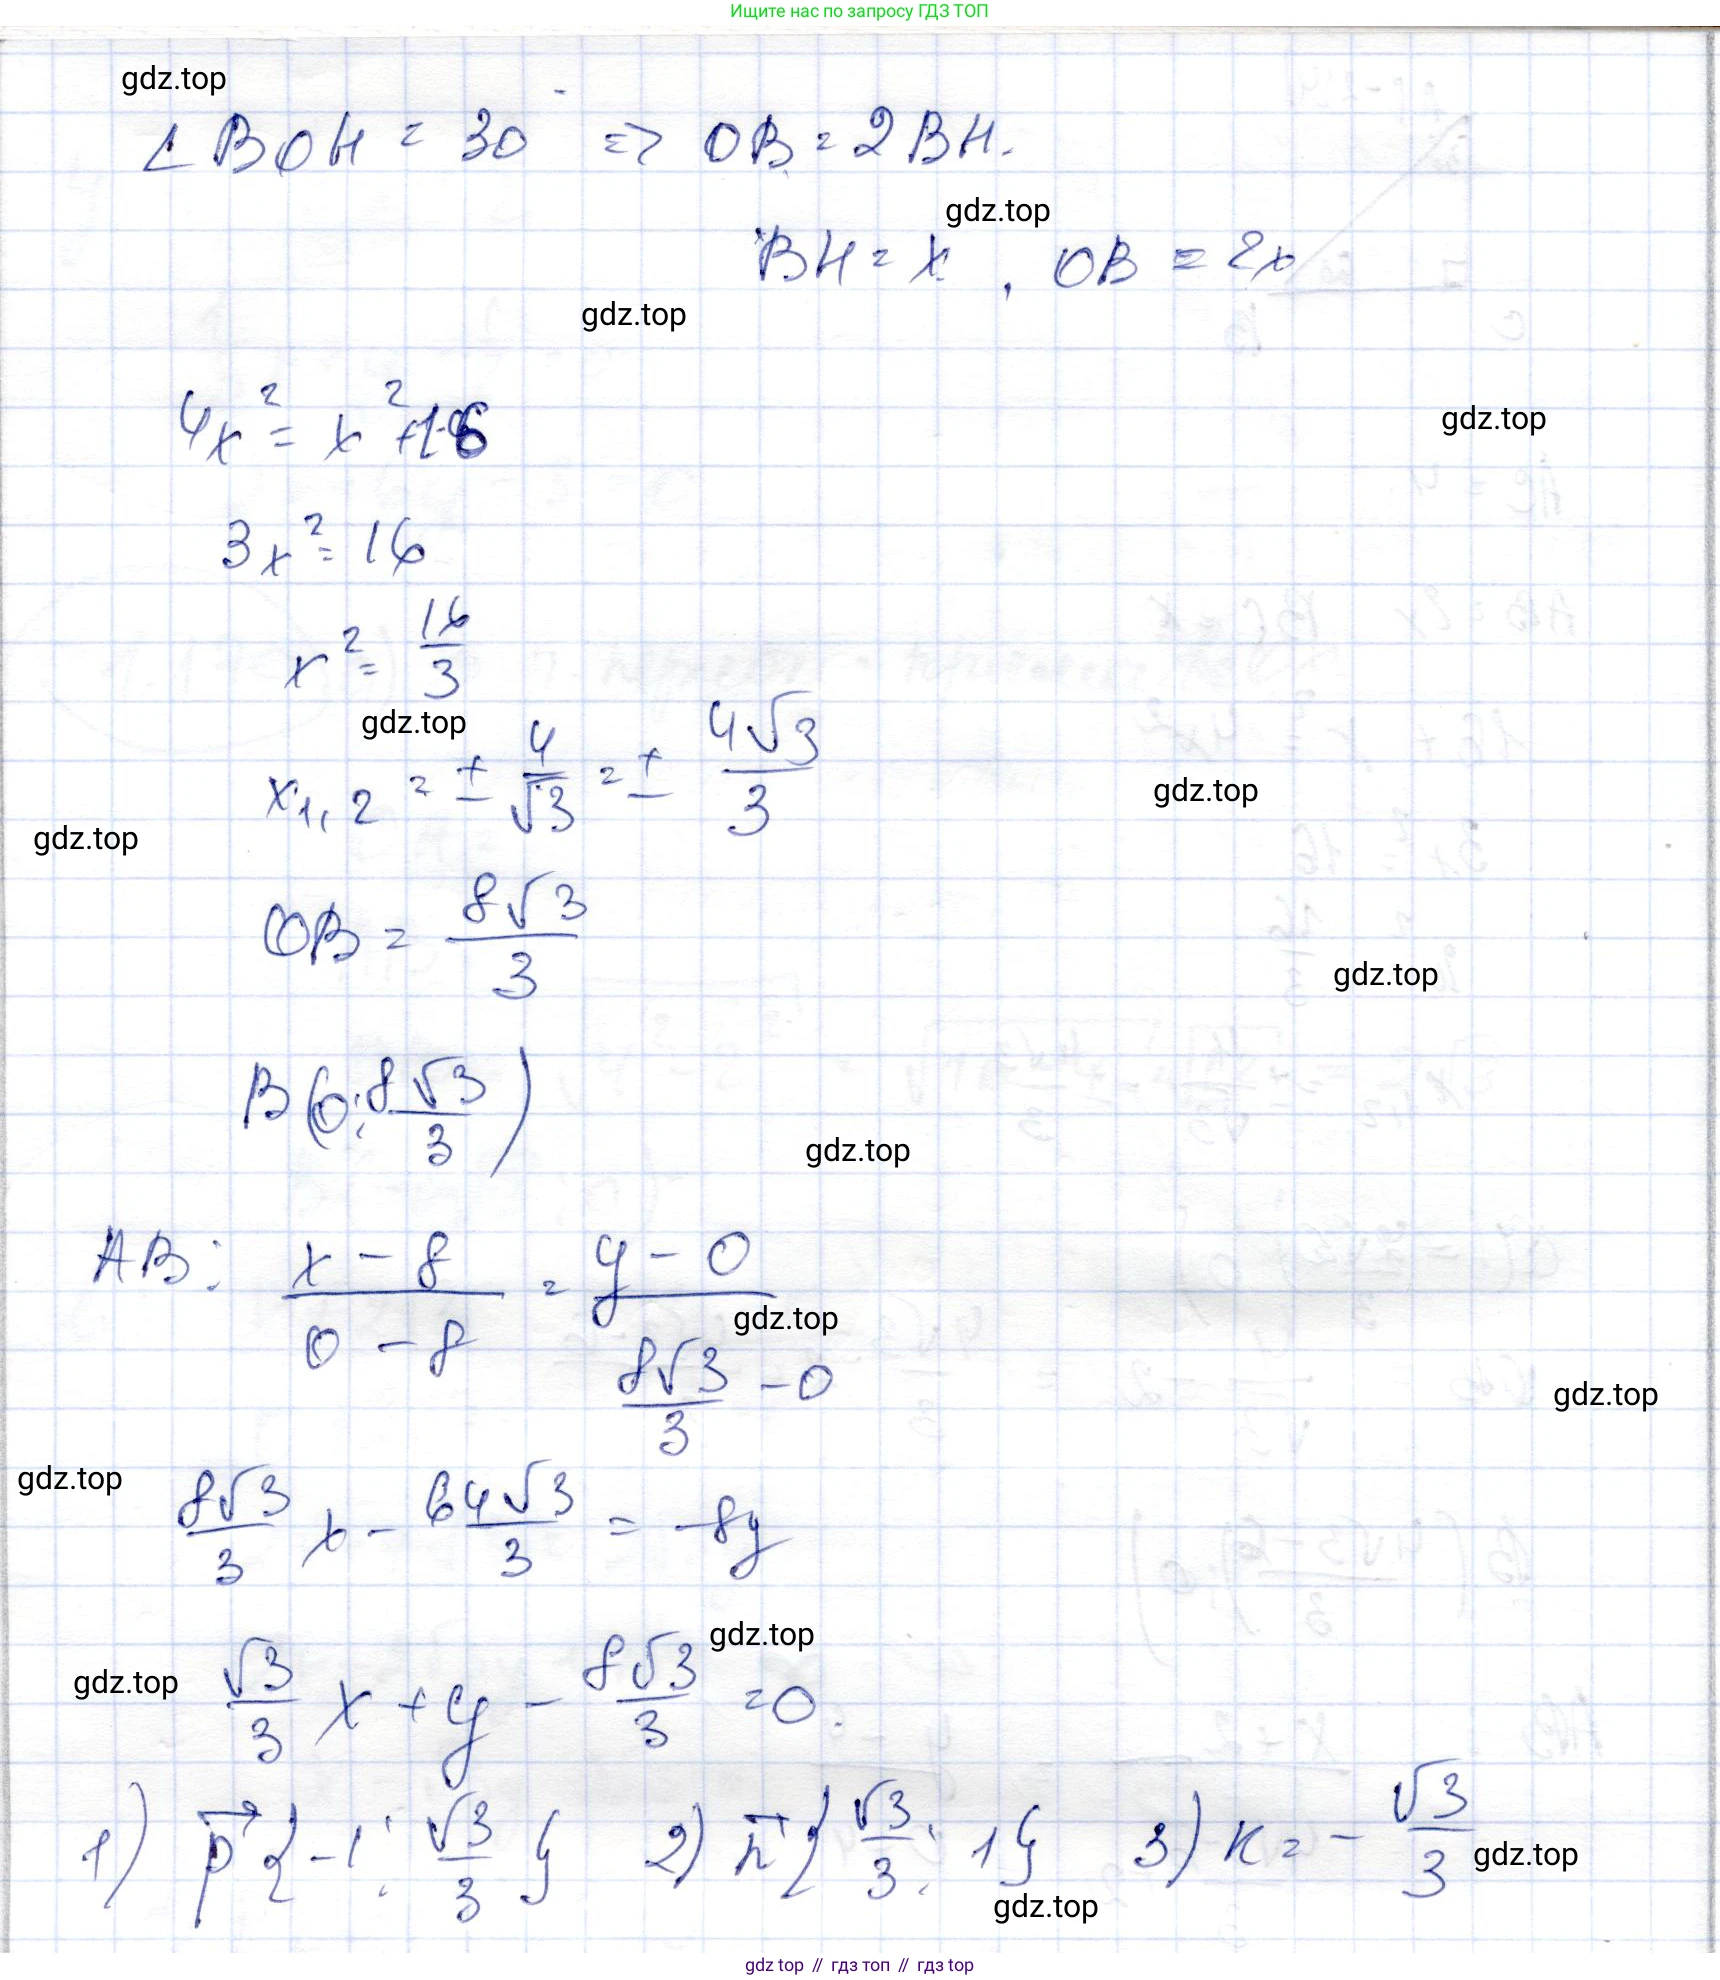 Ищите нас по запросу ГДЗ ТОП
gdz.top
∠BOH = 30 => OB = 2BH.
gdz.top
BH = x, OB = 2x
gdz.top
4x² = x² + 16
gdz.top
3x² = 16
x² = 16/3
gdz.top
x₁,₂ = ± 4/√3 = ± 4√3/3
gdz.top
gdz.top
OB = 8√3/3
gdz.top
B(0; 8√3/3)
gdz.top
AB: (x - 8)/(0 - 8) = (y - 0)/(8√3/3 - 0)
gdz.top
gdz.top
gdz.top
8√3/3 x - 64√3/3 = -8y
gdz.top
gdz.top
√3/3 x + y - 8√3/3 = 0.
1) p⃗{-1; √3/3} 2) n⃗{√3/3; 1} 3) k = -√3/3
gdz.top
gdz.top
gdz top // гдз топ // gdz top